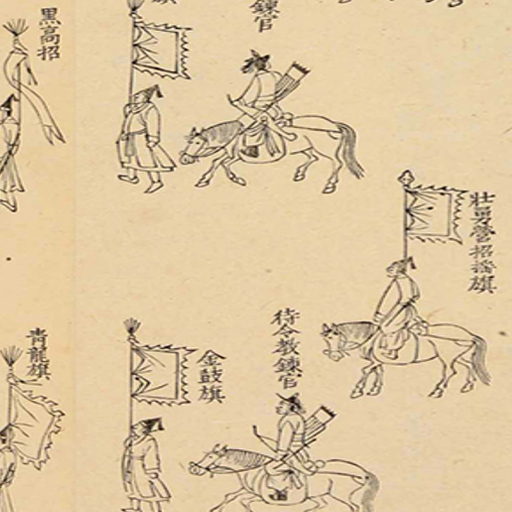 鍊官
旗
黑高招
壯勇營招搖旗
待令教鍊官
金鼓旗
青龍旗二